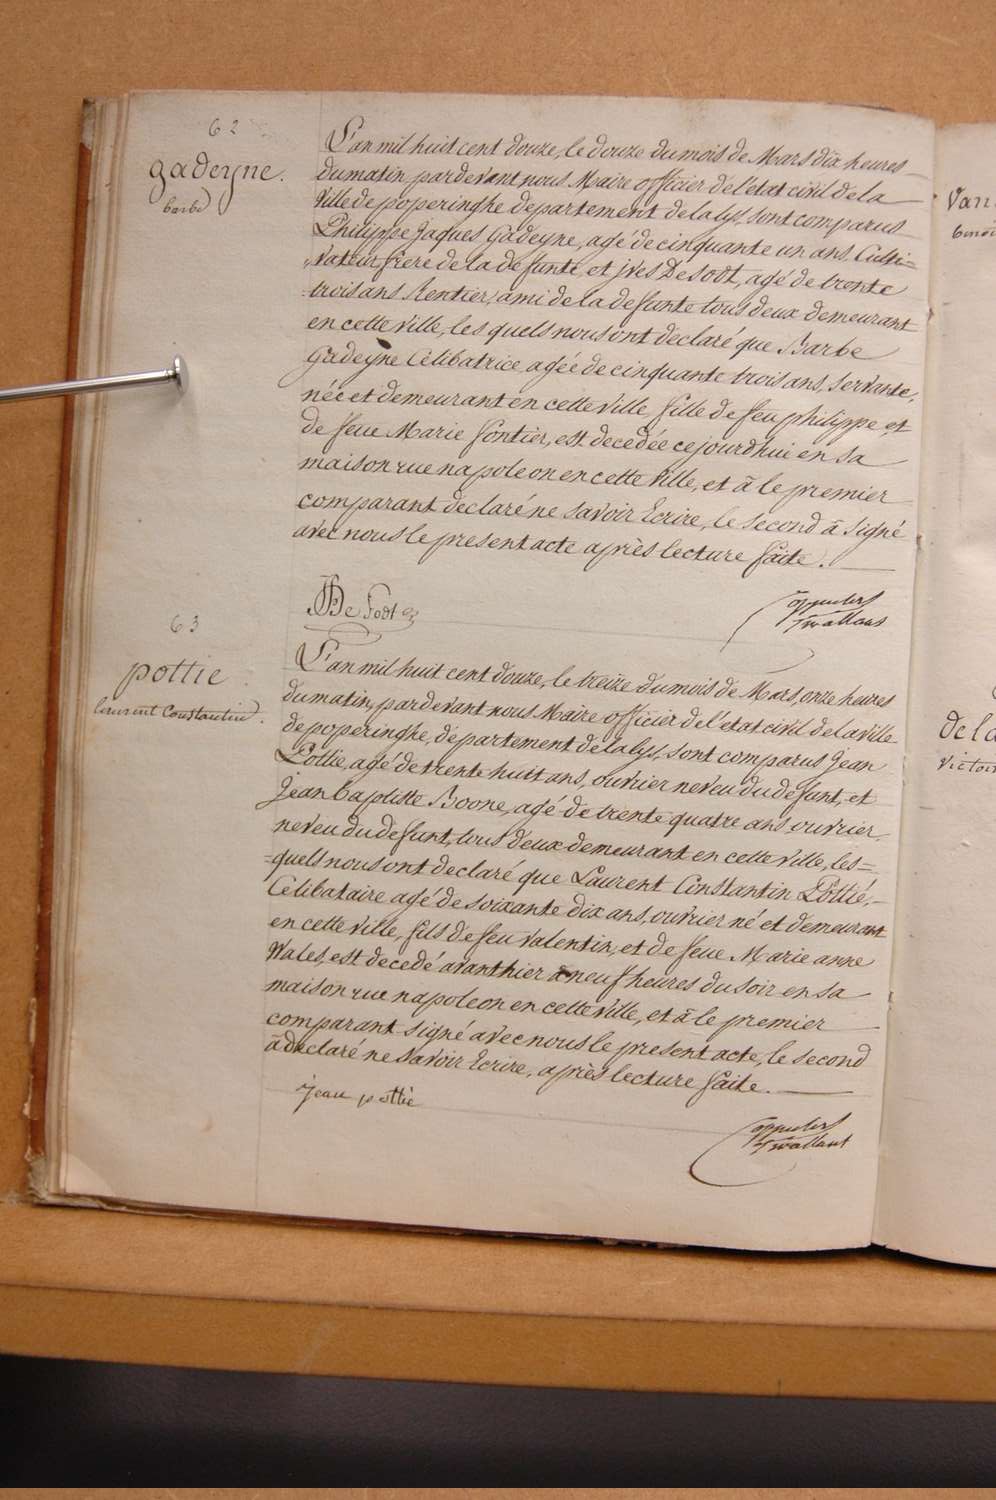 62
gadeyne.
barbe
L'an mil huit cent douze, le douze du mois de Mars dix heures
du matin, pardevant nous Maire officier de l'etat civil de la
Ville de poperinghe departement de la lys, sont comparus
Philippe Jaques Gadeyne, agé de cinquante un ans Culti=
=vateur frere de la defunte et yves De Sodt, agé de trente
trois ans Rentier, ami de la defunte tous deux demeurant
en cette ville, les quels nous ont declaré que Barbe
Gadeyne Célibatrice agée de cinquante trois ans, Servante,
née et demeurant en cette ville fille de feu philippe et
de feue Marie fontier, est decedée cejourdhui en sa
maison rue napoleon en cette Ville, et à le premier
comparant declaré ne savoir Ecrire, le second à Signé
avec nous le present acte après lecture faite.
De Sodt
63
pottie
laurent Constantin.
L'an mil huit cent douze, le treize du mois de Mars, onze heures
du matin, pardevant nous Maire officier de l'etat civil de la ville
de poperinghe, departement de la lys, sont comparus Jean
Pottie, agé de trente huit ans, ouvrier neveu du defunt, et
Jean baptiste Boone, agé de trente quatre ans ouvrier
neveu du defunt, tous deux demeurant en cette ville, les=
=quels nous ont declaré que Laurent Constantin Pottié,
Célibataire agé de soixante dix ans, ouvrier né et demeurant
en cette ville, fils de feu valentin, et de feue Marie anne
Wales, est decedé avanthier à neuf heures du soir en sa
maison rue napoleon en cette ville, et à le premier
comparant signé avec nous le present acte, le second
à declaré ne savoir Ecrire, après lecture faite.
jean pottie
Van
de la
victoir